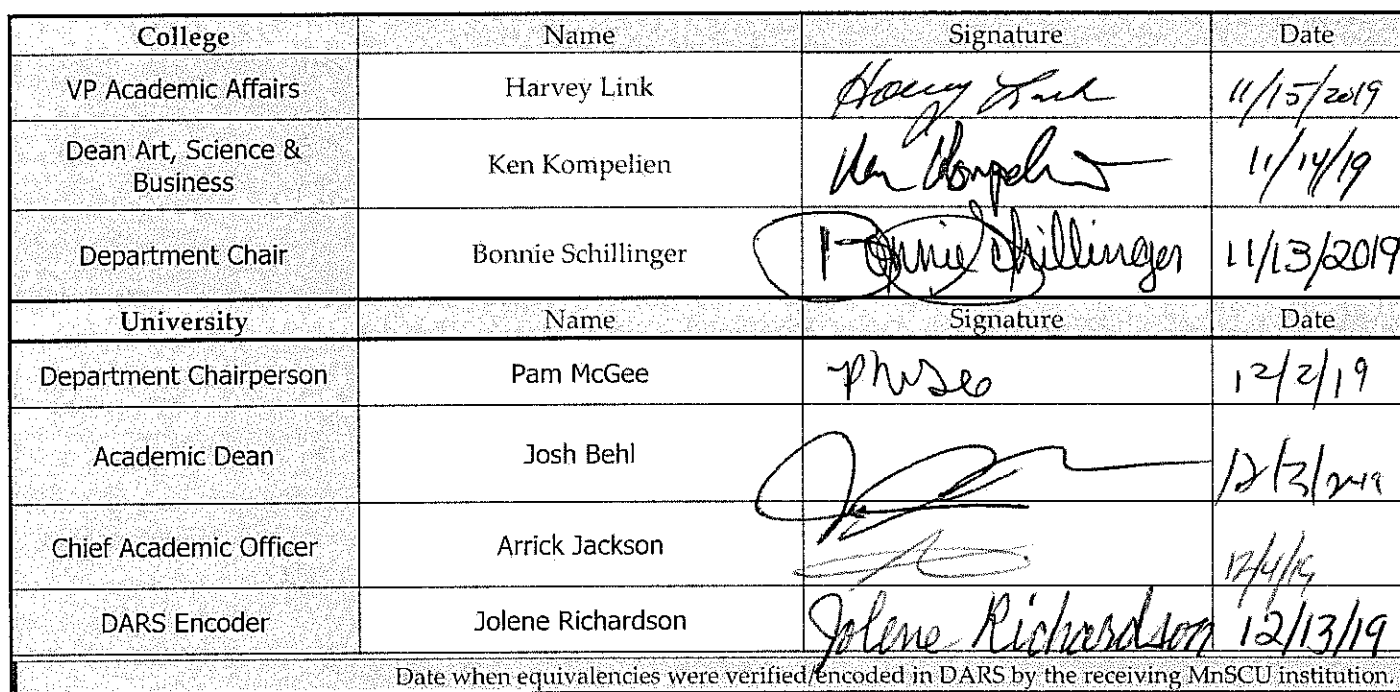 College Name Signature Date
VP Academic Affairs Harvey Link Harvey Link 11/15/2019
Dean Art, Science &
Business Ken Kompelien Ken Kompelien 11/14/19
Department Chair Bonnie Schillinger Bonnie Schillinger 11/13/2019
University Name Signature Date
Department Chairperson Pam McGee PMcGee 12/2/19
Academic Dean Josh Behl 12/3/2019
Chief Academic Officer Arrick Jackson 12/4/19
DARS Encoder Jolene Richardson Jolene Richardson 12/13/19
Date when equivalencies were verified/encoded in DARS by the receiving MnSCU institution.